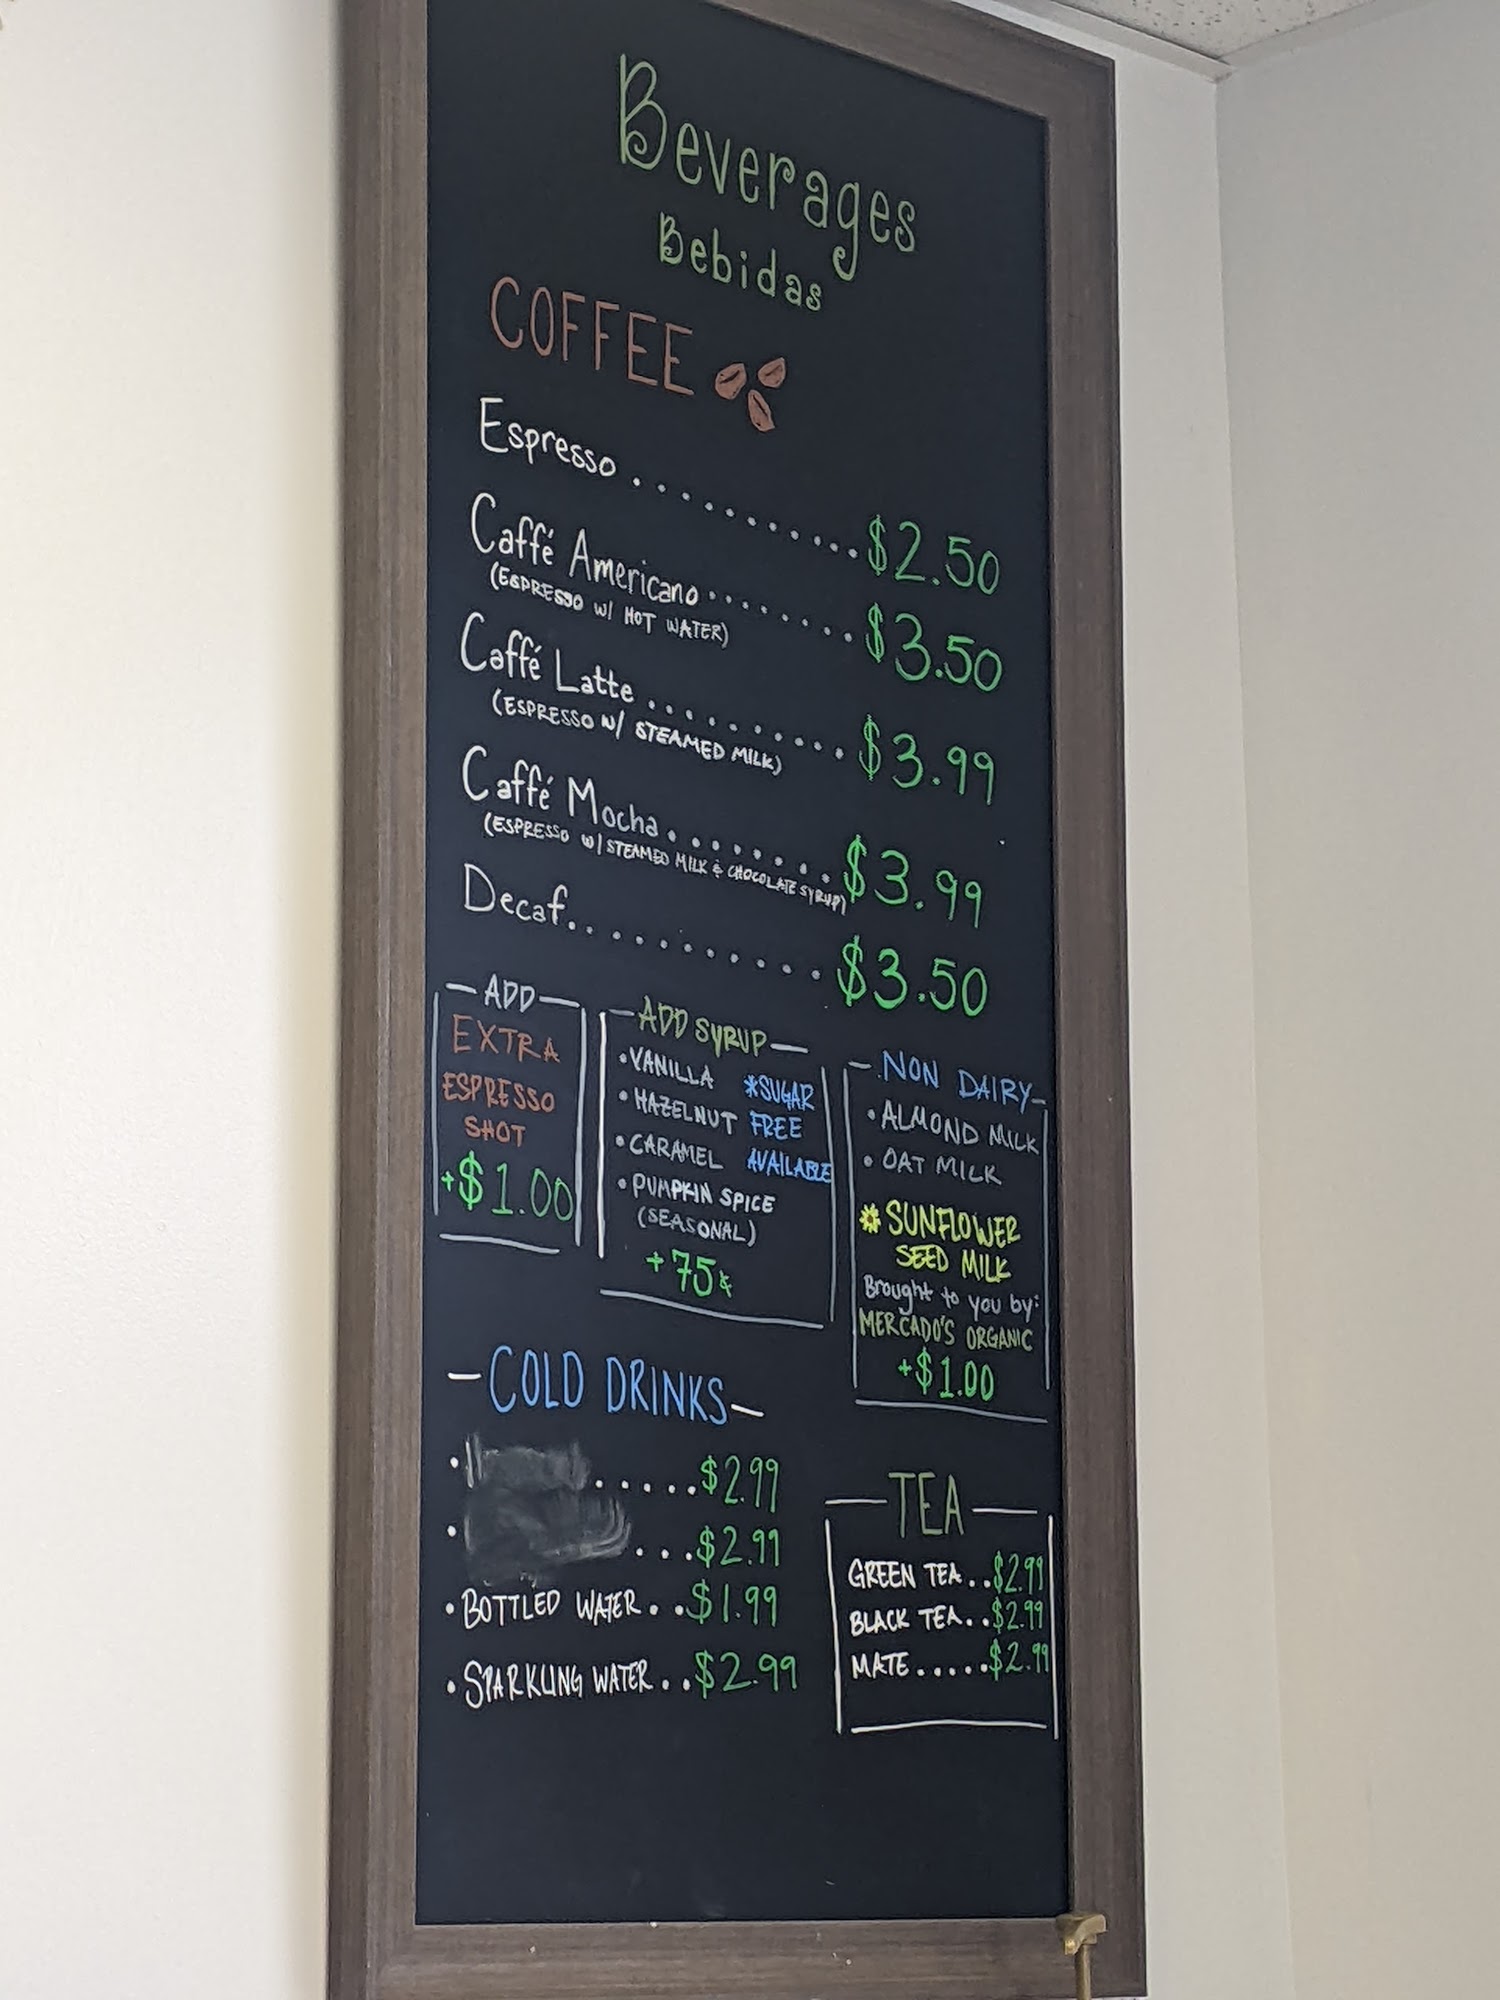 Beverages
Bebidas
COFFEE
Espresso ........... $2.50
Caffé Americano ........ $3.50
(ESPRESSO W/ HOT WATER)
Caffé Latte .......... $3.99
(ESPRESSO W/ STEAMED MILK)
Caffé Mocha ........ $3.99
(ESPRESSO W/ STEAMED MILK & CHOCOLATE SYRUP)
Decaf ............ $3.50
ADD
EXTRA
ESPRESSO
SHOT
+$1.00
ADD SYRUP
• VANILLA
• HAZELNUT
• CARAMEL
• PUMPKIN SPICE
(SEASONAL)
+75¢
*SUGAR
FREE
AVAILABLE
NON DAIRY
• ALMOND MILK
• OAT MILK
* SUNFLOWER
SEED MILK
Brought to you by:
MERCADO'S ORGANIC
+$1.00
COLD DRINKS
• ..... $2.99
• ... $2.99
• BOTTLED WATER .. $1.99
• SPARKLING WATER .. $2.99
TEA
GREEN TEA .. $2.99
BLACK TEA .. $2.99
MATE ..... $2.99